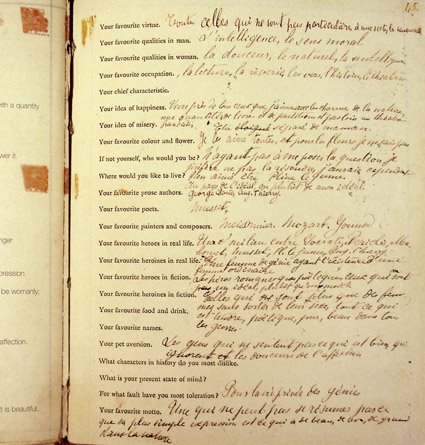 145.
Your favourite virtue. Toutes celles qui ne sont pas particulière à une secte, les universelles
Your favourite qualities in man. L'intelligence, le sens moral
Your favourite qualities in woman. la douceur, le naturel, l'intelligence
Your favourite occupation. la lecture, la rêverie, les vers, l'histoire, le théâtre
Your chief characteristic.
Your idea of happiness. Vivre près de tous ceux que j'aime avec les charmes de la nature
une quantité de livres et de partitions et pas loin un théâtre
français
Your idea of misery. Être éloigné séparé de maman.
Your favourite colour and flower. Je les aime toutes, et pour les fleurs je ne sais pas
If not yourself, who would you be? N'ayant pas à me poser la question je
préfère ne pas la résoudre, j'aurais cependant
bien aimé être Pline le jeune.
Where would you like to live? Au pays de l'idéal ou plutôt de mon idéal
Your favourite prose authors. George Sand, Aug. Thierry
Your favourite poets. Musset.
Your favourite painters and composers. Meissonier. Mozart. Gounod
Your favourite heroes in real life. Un milieu entre Socrate, Périclès,
Musset, Pline le jeune, Aug. Thierry
Your favourite heroines in real life. Une femme de génie ayant l'existence d'une
femme ordinaire
Your favourite heroes in fiction. Les héros romanesques poétiques, ceux qui sont
un idéal plutôt qu'un modèle
Your favourite heroines in fiction. Celles qui sont plus que des femmes
sans sortir de leur sexe, tout ce qui
est tendre, poétique, pur, beau dans tous
les genres
Your favourite food and drink.
Your favourite names.
Your pet aversion. Les gens qui ne sentent pas ce qui est bien, qui
ignorent les douceurs de l'affection
What characters in history do you most dislike.
What is your present state of mind?
For what fault have you most toleration? Pour la vie privée des génies
Your favourite motto. Une qui ne peut pas se résumer parce
que sa plus simple expression est ce qui a de beau, de bon, de grand
dans la nature
with a quantity
wer it.
nger
pression
be womanly;
affection.
t is beautiful,